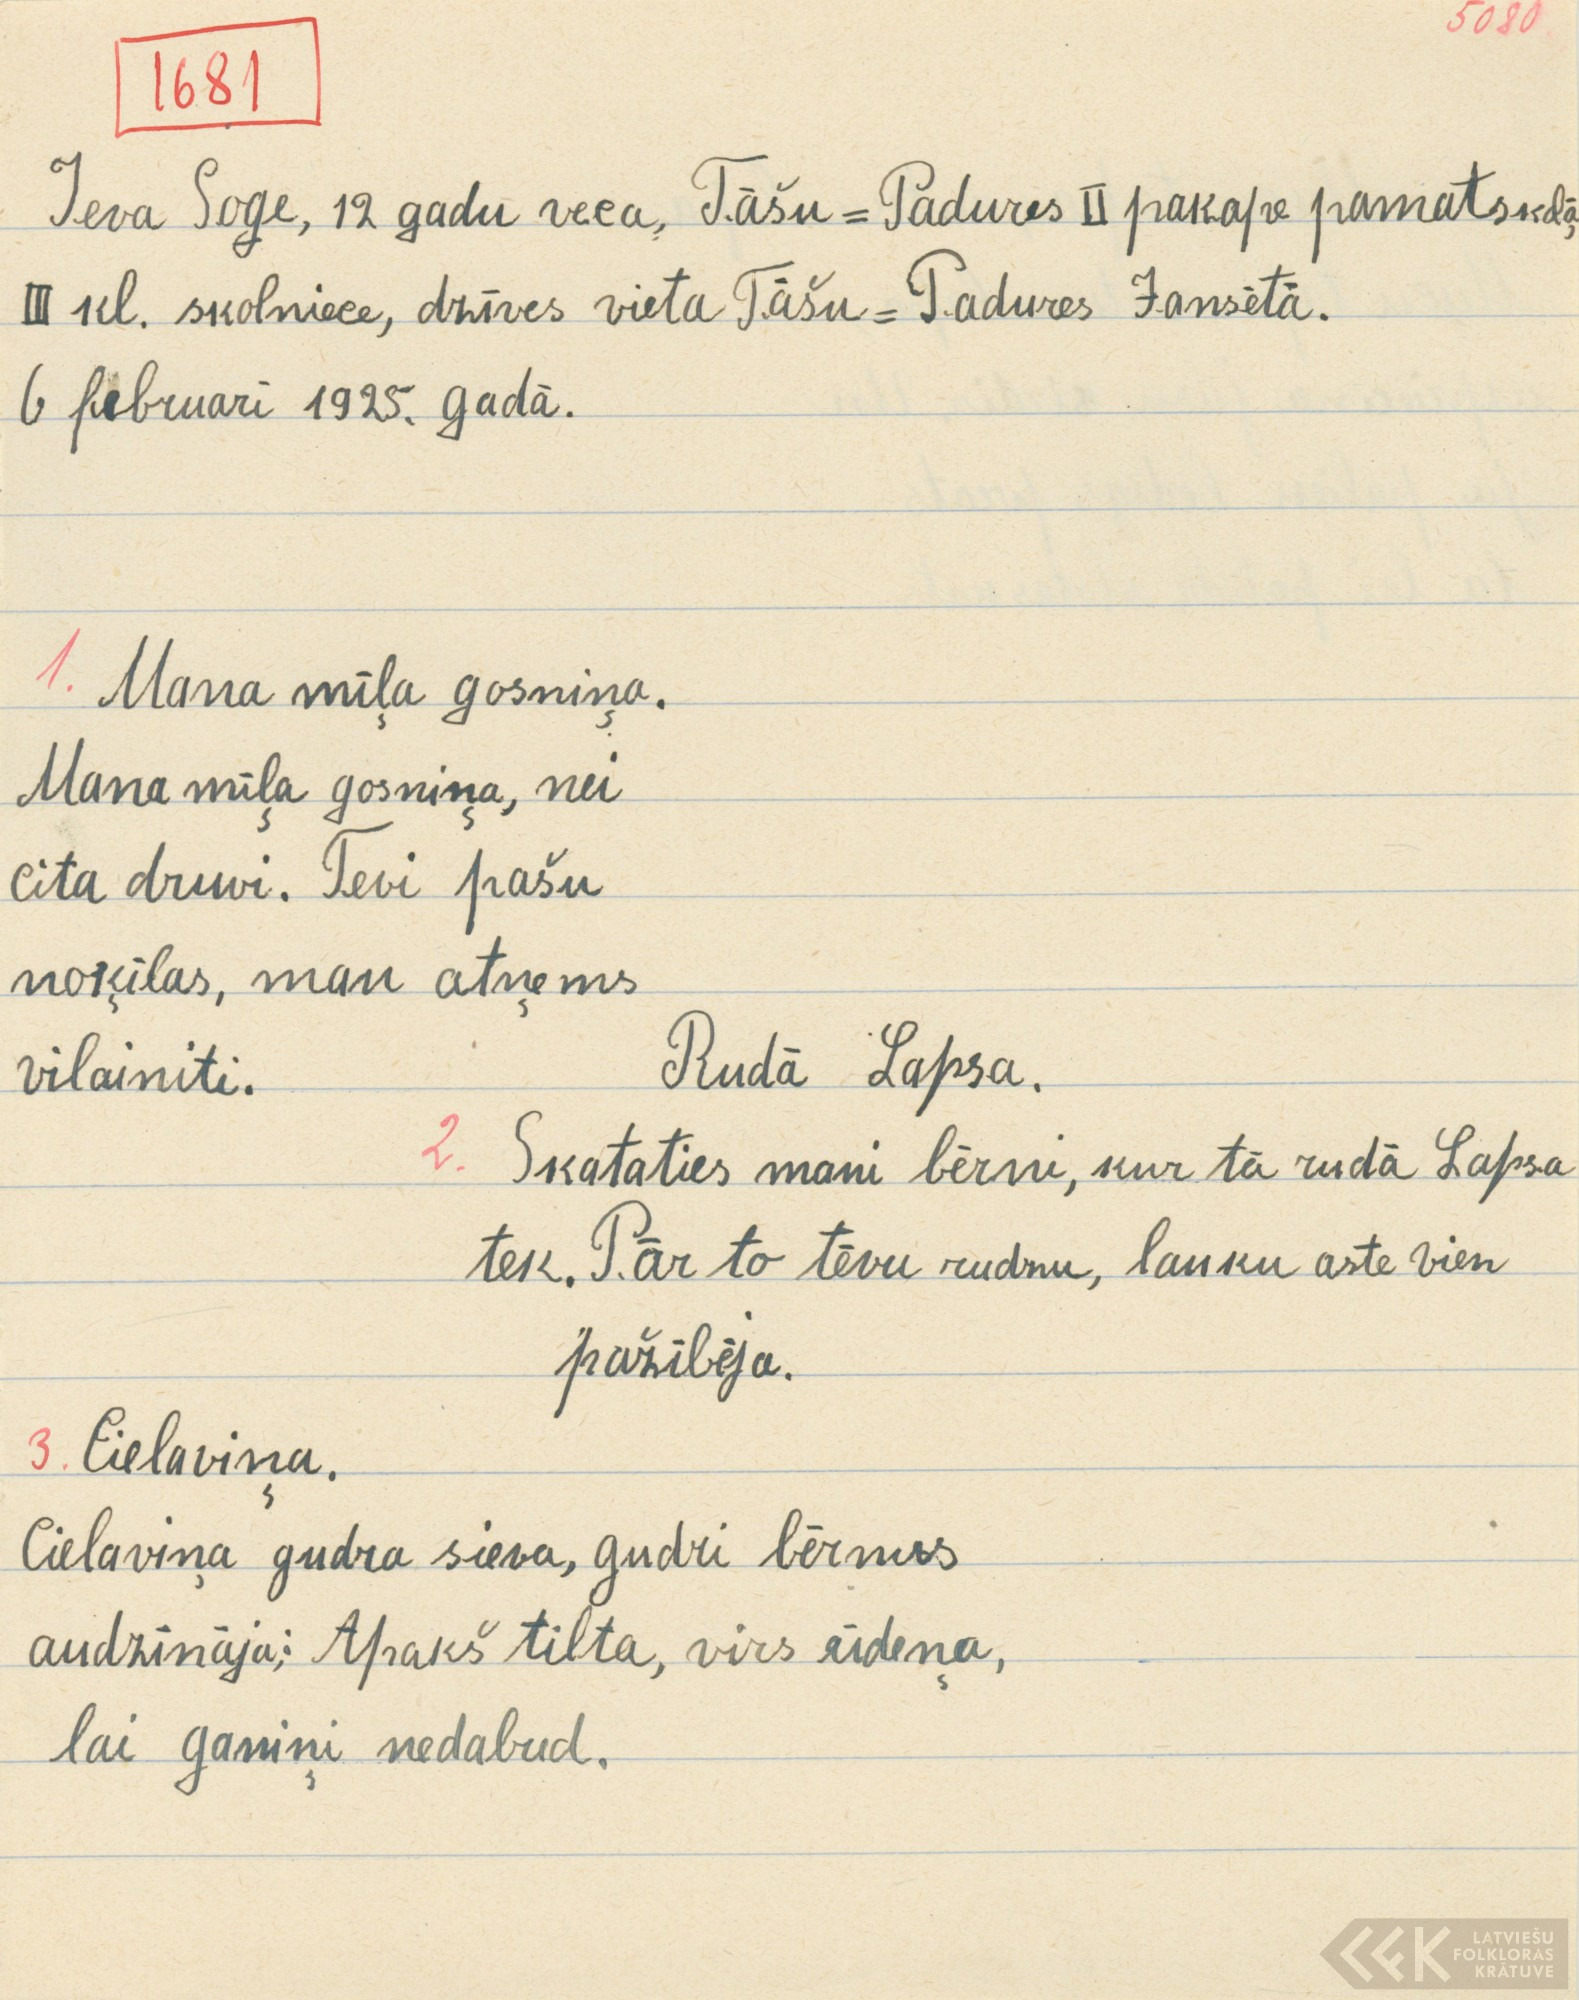 5080
1681
Ieva Soge, 12 gadu veca, Tāšu=Padures II pakape pamatskolā,
III kl. skolniece, dzīves vieta Tāšu=Padures Jansētā.
6 februarī 1925. gadā.
1. Mana mīļa gosniņa.
Mana mīļa gosniņa, nei
cita druvi. Tevi pašu
noķīlas, man atņems
vilainiti.
Rudā Lapsa.
2. Skataties mani bērni, kur tā rudā Lapsa
tek. Pār to tēvu rudzu, lauku aste vien
pažībēja.
3. Cielaviņa.
Cielaviņa gudra sieva, gudri bērnus
audzīnāja; Apakš tilta, virs ūdeņa,
lai ganiņi nedabud.
LATVIEŠU
FOLKLORAS
KRĀTUVE